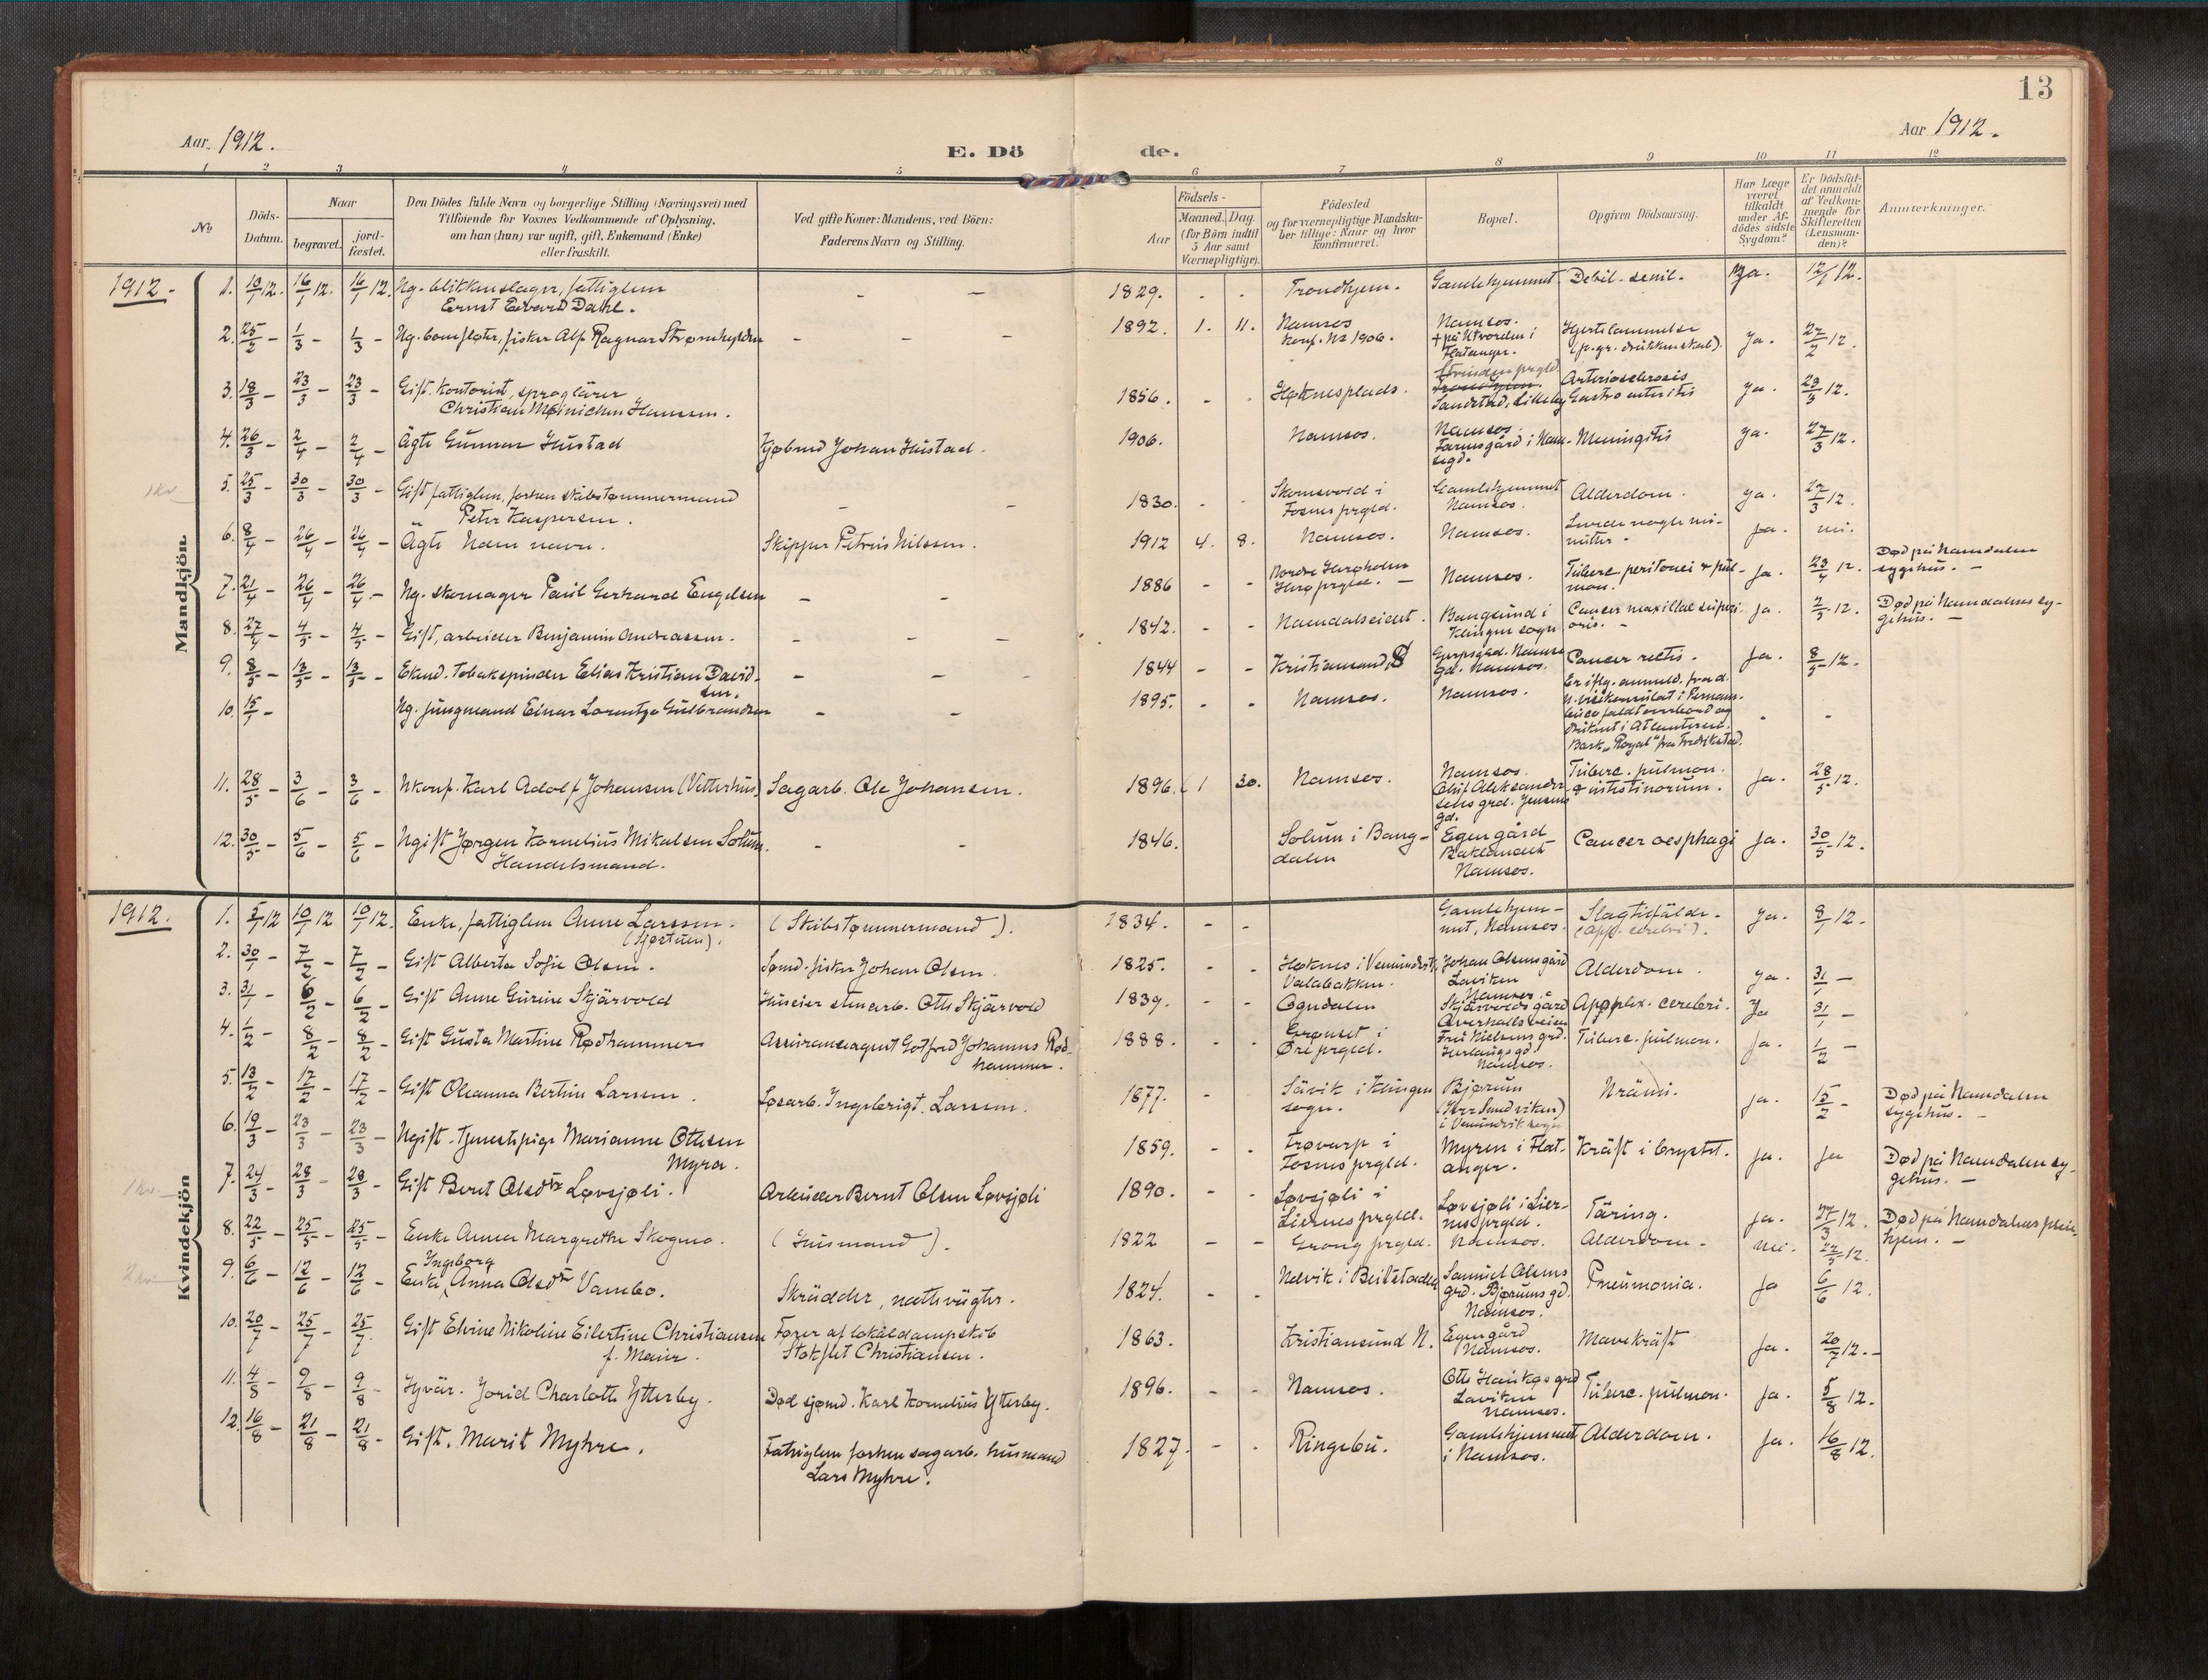 13
Aar 1912.
E. Dö de.
Aar 1912.
1 2 3 4 5 6 7 8 9 10 11 12
No
Döds-Datum.
Naar
begravet.
jord-fæstet.
Den Dödes fulde Navn og borgerlige Stilling (Næringsvei) med
Tilföiende for Voxnes Vedkommende af Oplysning,
om han (hun) var ugift, gift, Enkemand (Enke)
eller fraskilt.
Ved gifte Koner: Mandens, ved Börn:
Faderens Navn og Stilling.
Födsels-
Aar
Maaned. Dag.
(for Börn indtil
5 Aar samt
Værnepligtige).
Födested
og for værnepligtige Mandska-
ber tillige: Naar og hvor
Konfirmeret.
Bopæl.
Opgiven Dödsaarsag.
Har Læge
været
tilkaldt
under Af-
dödes sidste
Sygdom?
Er Dödsfal-
det anmeldt
af Vedkom-
mende for
Skifteretten
(Lensman-
den)?
Anmærkninger.
Mandkjön
1912.
1. 10/1 12. 16/1 12. 16/1 12. Ug. blikkenslager, fattiglem - - 1829. - - Trondhjem. Gamlehjemmet. Debil. senil. Ja. 12/1 12.
Ernst Edvard Dahl.
2. 25/2 - 1/3 - 1/3 - Ug. bomfløter, fisker Alf Ragnar Strømhylden - - - 1892. 1. 11. Namsos Namsos. Hjertelammelse Ja. 27/2 12.
Konf. Ns 1906. + på Utvorden i (p. gr. drukkenskab).
Flatanger.
3. 18/3 - 23/3 - 23/3 - Gift. Kontorist, sproglärer 1856. - - Høknesplads. Strinden prgld. Arteriosclerosis ja. 23/3 12.
Christian Meinichen Hansen. Sandstad, Lilleby Gastro enteritis
4. 26/3 - 2/4 - 2/4 - Ägte Gunnar Hustad Kjøbmd Johan Hustad. 1906. Namsos. Namsos. Meningitis ja. 27/3 12.
1 kv. 5. 25/3 - 30/3 - 30/3 - Gift fattiglem, forhen skibstømmermand - - 1830. - Skomsvold i Gamlehjemmet Alderdom. ja. 27/3 12.
Peter Kaspersen. Fosnes prgld. Namsos.
6. 8/4 - 26/4 - 26/4 - Ägte Uden navn. Skipper Petrus Nilssen. 1912 4. 8. Namsos. Namsos. Levede nogle mi- ja. nei.
nutter.
7. 21/4 - 26/4 - 26/4 - Ug. skomager Paul Gerhard Engelsen - - 1886 - - Namsos. Tuberc. peritonei & pul- Ja. 23/4 12. Død på Namdalens
mon. sygehus. -
8. 27/4 - 4/5 - 4/5 - Gift, arbeider Benjamin Andreassen. - - - 1842. - - Namdalseidet. Bangsund i Cancer maxillae superi- Ja. 2/5 12. Død på Namdalens sy-
Klingen sogn oris. - gehus. -
9. 8/5 - 13/5 - 13/5 - Ekmd. Tobakspinder Elias Kristian David- - - 1844 - - Kristiansand S Namsos. Cancer recti. Ja. 8/5 12.
sen.
10. 15/1 - Ug. jungmand Einar Lorentze Gulbrandsen - - 1895. - - Namsos. Namsos. Er iflg. anmeld. fra d.
n. vicekonsulat i Pernam-
buco faldt overbord og
druknet i Atlanteren.
Bark „Royal" fra Fredrikstad.
11. 28/5 - 3/6 - 3/6 - Ukonf. Karl Adolf Johansen (Vetterhus) Sagarb. Ole Johansen. 1896. 1 30. Namsos. Namsos. Tuberc. pulmon. Ja. 28/5 12.
Oluf Aleksander- & intestinorum.
sens grd. Jensens
gd.
12. 30/5 - 5/6 - 5/6 - Ugift Jørgen Kornelius Mikalsen Solum. - - 1846. Solum i Bang- Egen gård Cancer oesphagi Ja. 30/5 12.
Handelsmand. dalen Baklandet
Namsos.
Kvindekjön
1912.
1. 5/1 12 10/1 12 10/1 12. Enke, fattiglem Anne Larssen. (Skibstømmermand). 1834. - - Gamlehjem- Slagtilfälde. Ja. 8/1 12.
met, Namsos. (app. cerebri).
2. 30/1 - 7/2 - 7/2 - Gift Alberta Sofie Olsen. Sømd. fisker Johan Olsen. 1825. - - Høknes i Johan Olsens gård Alderdom. ja. 31/1 -
Valabakken. Laviken
Namsos.
3. 31/1 - 6/2 - 6/2 - Gift Anne Gurine Skjärvold Huseier stenarb. Otto Skjärvold 1839. - - Ogndalen Skjärvolds gård Applex. cerebri. Ja 31/1 -
Overhallsveien
4. 1/2 - 8/2 - 8/2 - Gift Gusta Martine Rødhammer Assuranceagent Gotfred Johannes Rød- 1888. - - Grønset i Fru Nielsens grd. Tuberc. pulmon. Ja. 1/2 -
hammer. Øre prgld. Herlaugs gd.
Namsos.
5. 13/2 - 17/2 - 17/2 - Gift Oleanna Bertine Larsen. Løsarb. Ingebrigt Larsen. 1877. - - Sävik i Klingen Bjørum Urämi. ja. 15/2 - Død på Namdalens
sogn. sygehus. -
6. 19/3 - 23/3 - 23/3 - Ugift. Tjenestepige Marianne Ottesen 1859. - - Trøvarp i Myren i Flat- Kräft i brystet. ja. ja Død på Namdalens sy-
Myra. Fosnes prgld. anger. gehus. -
1 kv. 7. 24/3 - 28/3 - 28/3 - Gift Beret Olsdtr Løvsjøli. Arbeider Bernt Olsen Løvsjøli 1890. - - Løvsjøli i Løvsjøli i Lier- Täring. ja. 27/3 12. Død på Namdalens pleie-
Liernes prgld. nes prgld. hjem. -
8. 22/5 - 25/5 - 25/5 - Enke Anna Margrethe Skogmo. (Husmand). 1822 - - Grong prgld. Namsos. Alderdom. nei. 22/5 12.
Ingeborg
2 kv. 9. 6/6 - 12/6 - 12/6 - Enke, Anna Olsdtr Vambo. Skrädder, nattevägter. 1824. - - Samuel Olsens Pneumonia. Ja 6/6 12.
grd. Bjørums gd.
Namsos.
10. 20/7 - 25/7 - 25/7. Gift Elvine Nikoline Eilertine Christiansen Fører af lokaldampskib 1863. Kristiansund N. Egen gård Mavekräft Ja. 20/7 12.-
Stokflet Christiansen. Namsos.
11. 4/8 - 9/8 - 9/8 - Jorid Charlotte Ytterby. Død sjømd. Karl Kornelius Ytterby. 1896. - - Namsos. Laviken Tuberc. pulmon. Ja. 5/8 12.
Namsos.
12. 16/8 - 21/8 - 21/8 - Gift. Marit Myhre. Fattiglem forhen sagarb. husmand 1827. - - Ringebu. Gamlehjemmet Alderdom. Ja. 16/8 12.
Lars Myhre. i Namsos.